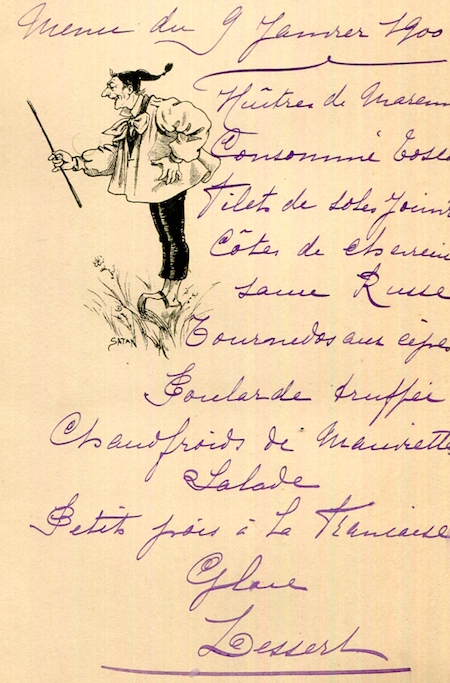 Menu du 9 Janvier 1900
Huîtres de Maren
Consommé Tosc
Filets de soles Join
Côtes de chevreui
sauce Russe
SATAN
Tournedos aux cèpes
Poularde truffée
Chaudfroids de Mauviette
Salade
Petits pois à La Francaise
Glace
Dessert